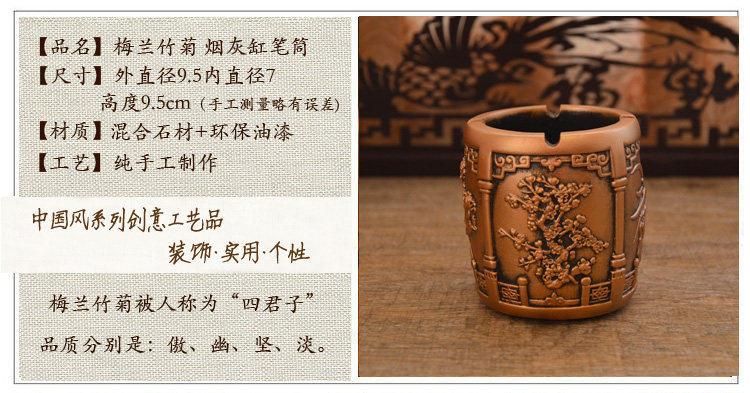 【品名】梅兰竹菊 烟灰缸笔筒
【尺寸】外直径9.5内直径7
高度9.5cm（手工测量略有误差）
【材质】混合石材+环保油漆
【工艺】纯手工制作
中国风系列创意工艺品
装饰·实用·个性
梅兰竹菊被人称为“四君子”
品质分别是：傲、幽、坚、淡。